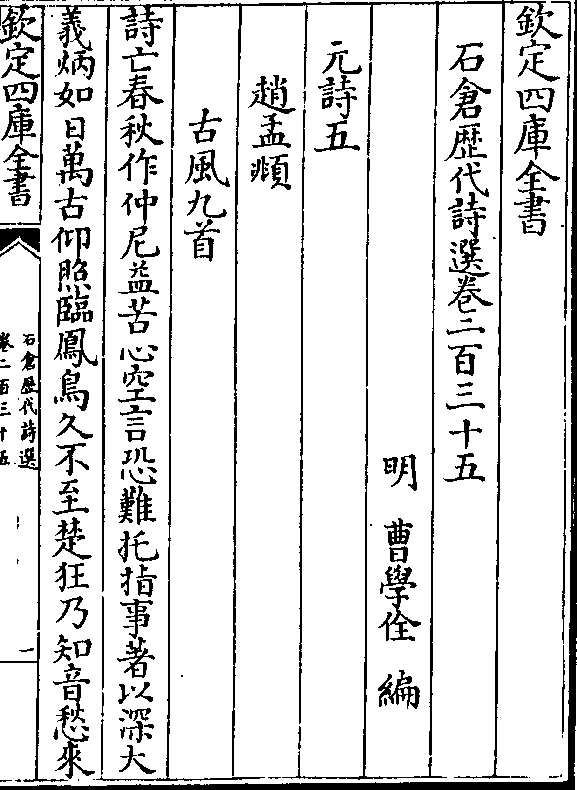 欽定四庫全書
石倉歴代詩選卷二百三十五
明 曹學佺 編
元詩五
趙孟頫
古風九首
詩亡春秋作仲尼益苦心空言恐難托指事著以深大
義炳如日萬古仰照臨鳳鳥久不至楚狂乃知音愁來
欽定四庫全書
石倉歴代詩選
卷二百三十五
一